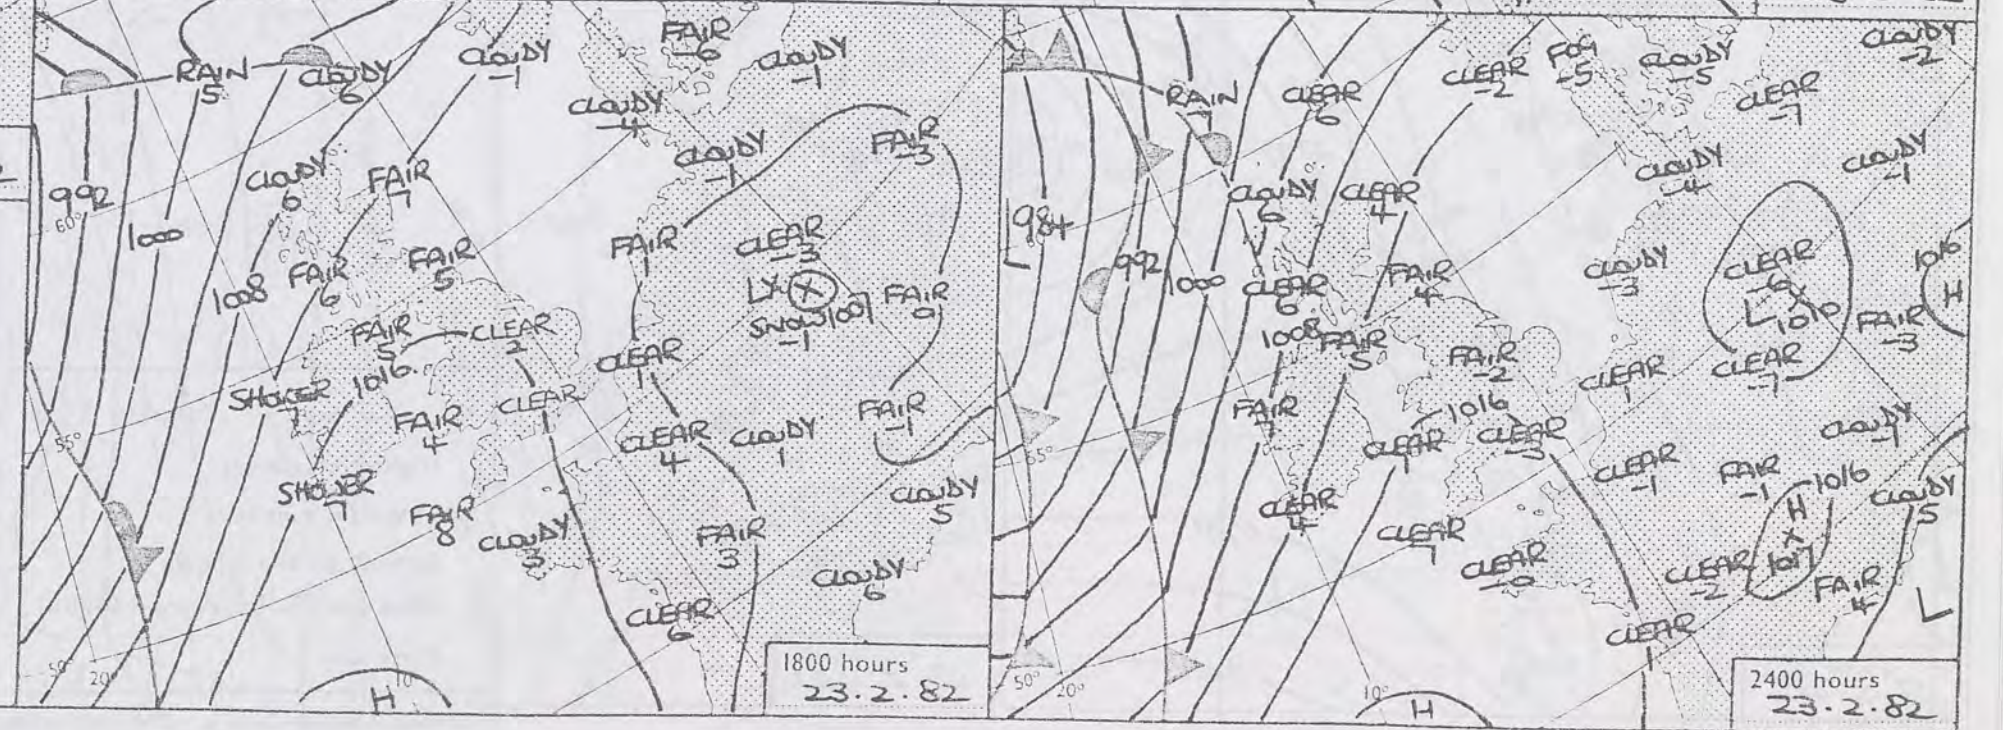 FAIR
-6
CLOUDY
-1
CLOUDY
-1
RAIN
5
CLOUDY
6
CLOUDY
-4
CLOUDY
-1
FAIR
-3
CLOUDY
6
FAIR
7
992
60°
1000
FAIR
CLEAR
-3
FAIR
5
FAIR
6
1008
L
SNOW 1007
-1
FAIR
0
FAIR
5
CLEAR
2
CLEAR
1
1016
SHOWER
7
FAIR
4
CLEAR
1
FAIR
-1
CLEAR
4
CLOUDY
1
55°
SHOWER
7
FAIR
8
CLOUDY
3
CLOUDY
5
FAIR
3
CLOUDY
6
CLEAR
6
50°
20°
10
H
1800 hours
23.2.82
CLOUDY
-2
CLEAR
-2
FOG
-5
CLOUDY
-5
CLEAR
-7
RAIN
7
CLEAR
6
CLOUDY
-4
CLOUDY
-1
CLOUDY
6
CLEAR
4
984
992
1000
CLEAR
6
FAIR
4
CLOUDY
-3
CLEAR
-6
L
1010
1016
H
FAIR
-3
1008
FAIR
5
FAIR
-2
CLEAR
1
CLEAR
-7
FAIR
7
1016
CLEAR
1
CLEAR
-3
CLOUDY
-1
CLEAR
-1
FAIR
-1
1016
H
1017
CLOUDY
5
CLEAR
4
CLEAR
7
CLEAR
-0
CLEAR
-2
FAIR
4
L
CLEAR
1
50°
20°
10°
H
2400 hours
23.2.82